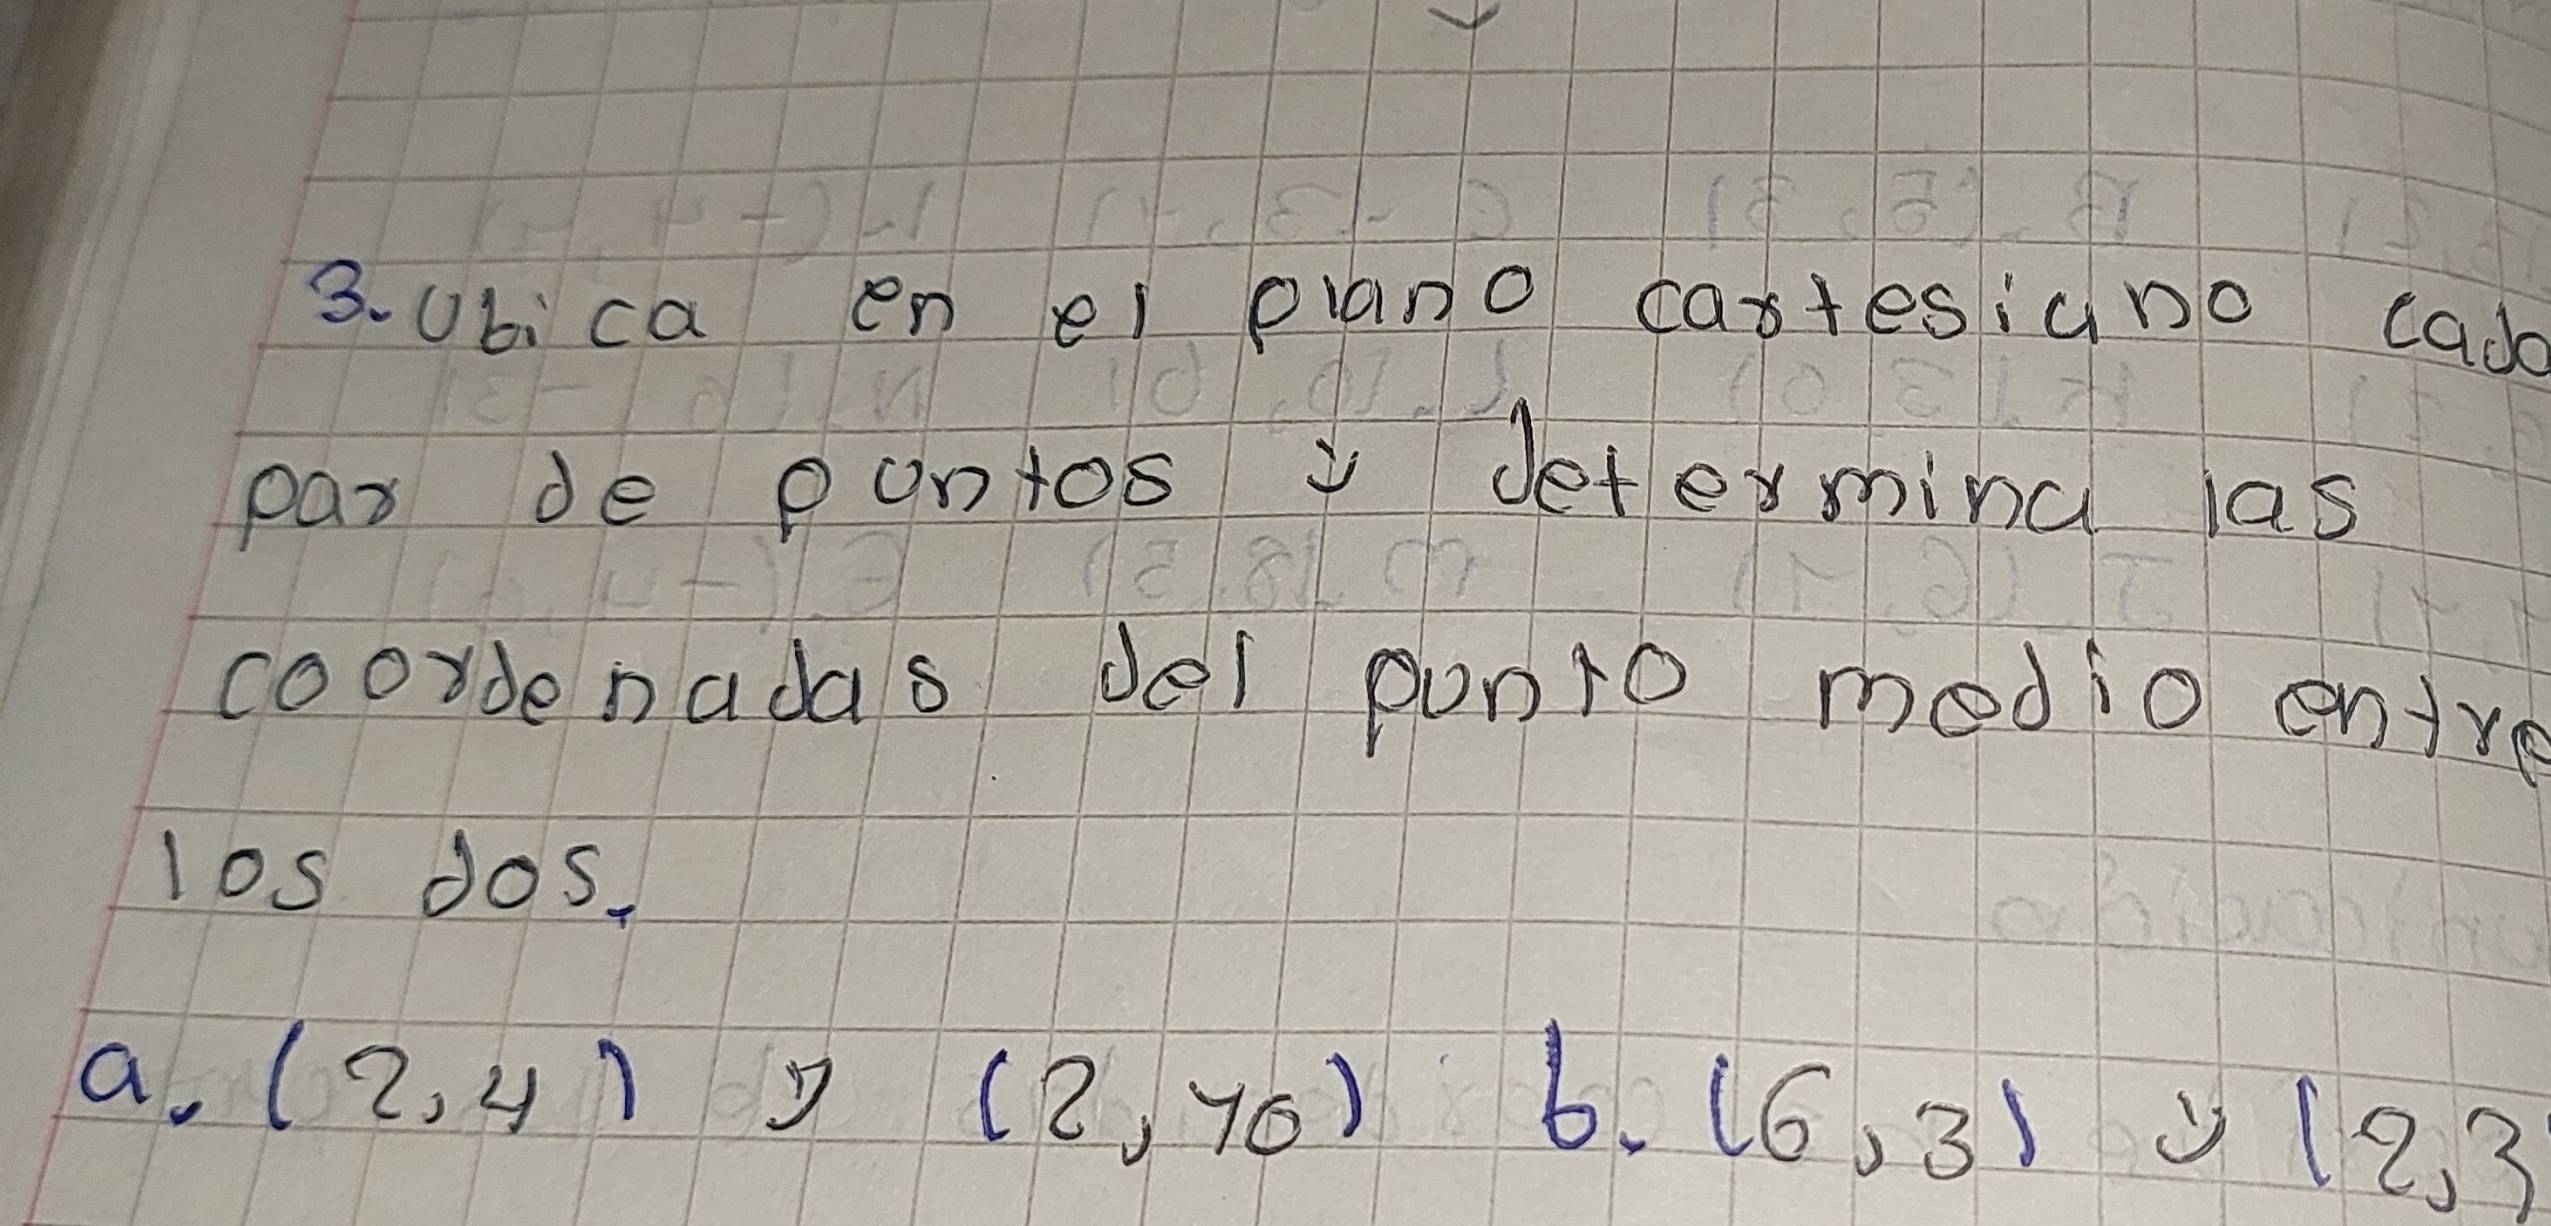 3. Ubica en el plano cartesiano cada
par de puntos y determina las
coordenadas del punto medio entre
los dos.
a. (2,4) y (2,10) b. (6,3) y (2,3